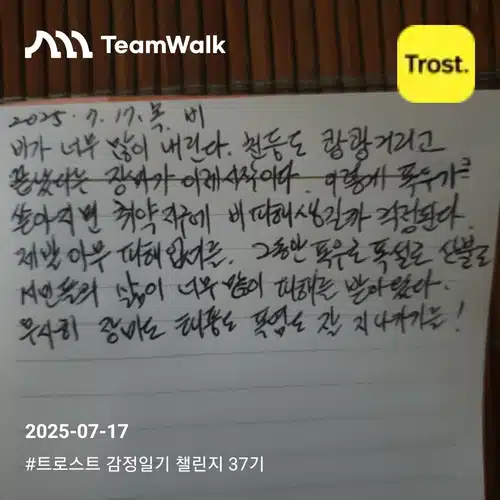 TeamWalk
Trost.
2025. 7. 17. 목. 비
비가 너무 많이 내린다. 천둥도 쾅쾅거리고
끝났다는 장마가 이제 시작이다. 이렇게 폭우가
쏟아지면 취약지구에 비 피해 생길까 걱정된다.
제발 아무 피해 없기를. 그동안 폭우로 폭설로 산불로
서민들의 삶이 너무 많이 피해를 받아왔다.
무사히 장마도 태풍도 폭염도 잘 지나가기를!
2025-07-17
#트로스트 감정일기 챌린지 37기